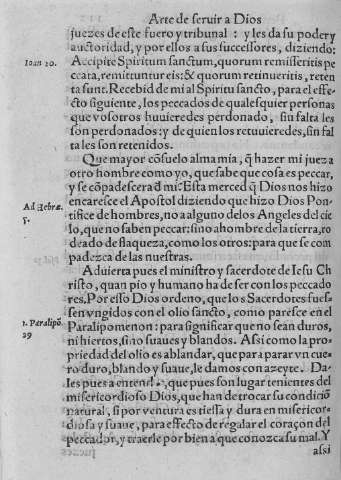 Arte de seruir a Dios
juezes de este fuero y tribunal : y les da su poder y
auctoridad, y por ellos a sus successores, diziendo:
Ioan 20.
Accipite Spiritum sanctum, quorum remisseritis pe
ccata, remittuntur eis: & quorum retinueritis, reten
ta sunt. Recebid de mi al Spiritu sancto, para el effe-
cto siguiente, los peccados de qualesquier personas
que vosotros huuieredes perdonado, sin falta les
son perdonados: y de quien los retuuieredes, sin fal
ta les son retenidos.
Que mayor cōsuelo alma mia, q̄ hazer mi juez a
otro hombre como yo, que sabe que cosa es peccar,
y se cōpadescera d̄ mi. Esta merced q̄ Dios nos hizo
Ad Hebræ.
5.
encaresce el Apostol diziendo que hizo Dios Pon-
tifice de hombres, no a alguno de los Angeles del cie
lo, que no saben peccar: sino a hombre de la tierra, ro
deado de flaqueza, como los otros: para que se com
padezca de las nuestras.
Aduierta pues el ministro y sacerdote de Iesu Ch
risto, quan pio y humano ha de ser con los peccado
res. Por esso Dios ordeno, que los Sacerdotes fues-
sen vngidos con el olio sancto, como paresce en el
1. Paralipō
29
Paralipomenon : para significar que no seān duros,
ni hiertos, sino suaues y blandos. Assi como la pro-
priedad del olio es ablandar, que para parar vn cue-
ro duro, blando y suaue, le damos con azeyte. Da-
les pues a entender, que pues son lugar tenientes del
misericordioso Dios, que han de trocar su condiciō
natural, si por ventura es tiessa y dura en misericor-
diosa y suaue, para effecto de regalar el coraçon del
peccador, y traerle por bien a que conozca su mal. Y
assi